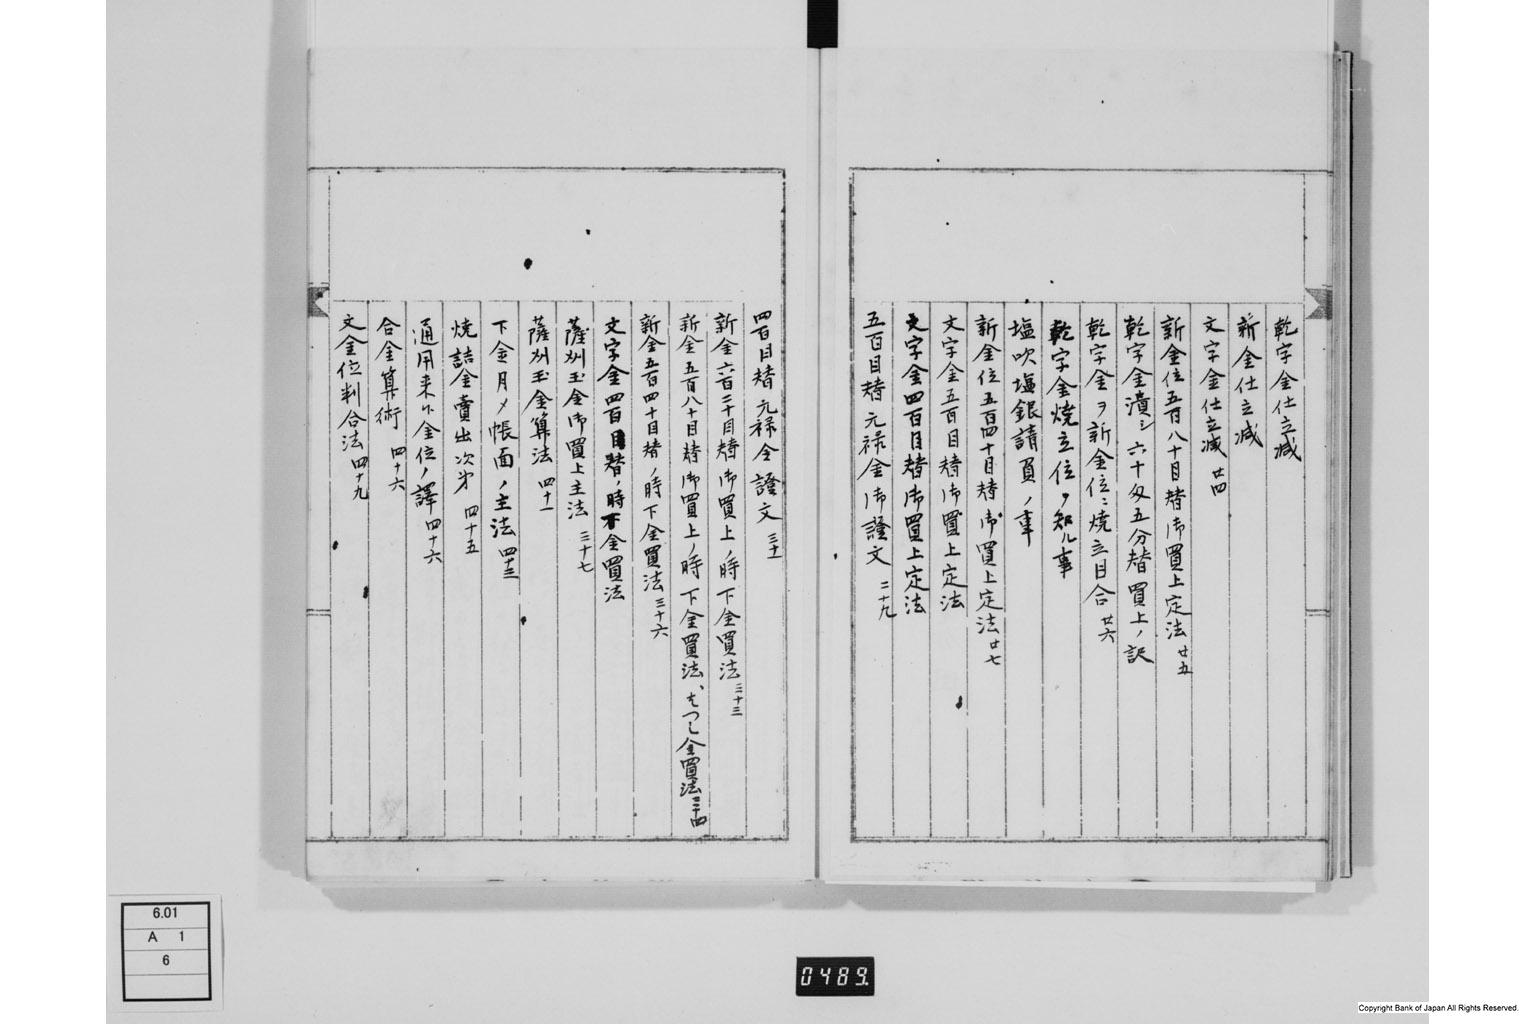 乾字金仕立減
新金仕立減
文字金仕立減 廿四
新金位五百八十目替御買上定法 廿五
乾字金潰シ六十匁五分替買上ノ訳
乾字金ヲ新金位ニ焼立目合 廿六
乾字金焼立位ヲ知ル事
塩吹塩銀請負ノ事
新金位五百四十目替御買上定法 廿七
文字金五百目替御買上定法
文字金四百目替御買上定法
五百目替元禄金御證文 二十九
四百目替元禄金證文 三十一
新金六百二十目替御買上ノ時下金買法 三十三
新金五百八十目替御買上ノ時下金買法、はつし金買法 三十四
新金五百四十目替ノ時下金買法 三十六
文字金四百目替ノ時下金買法
薩州玉金御買上主法 三十七
薩州玉金算法 四十一
下金月〆帳面ノ主法 四十三
焼詰金賣出次第 四十五
通用来ル金位ノ譯 四十六
合金算術 四十六
文金位判合法 四十九
6.01
A 1
6
0489.
Copyright Bank of Japan All Rights Reserved.